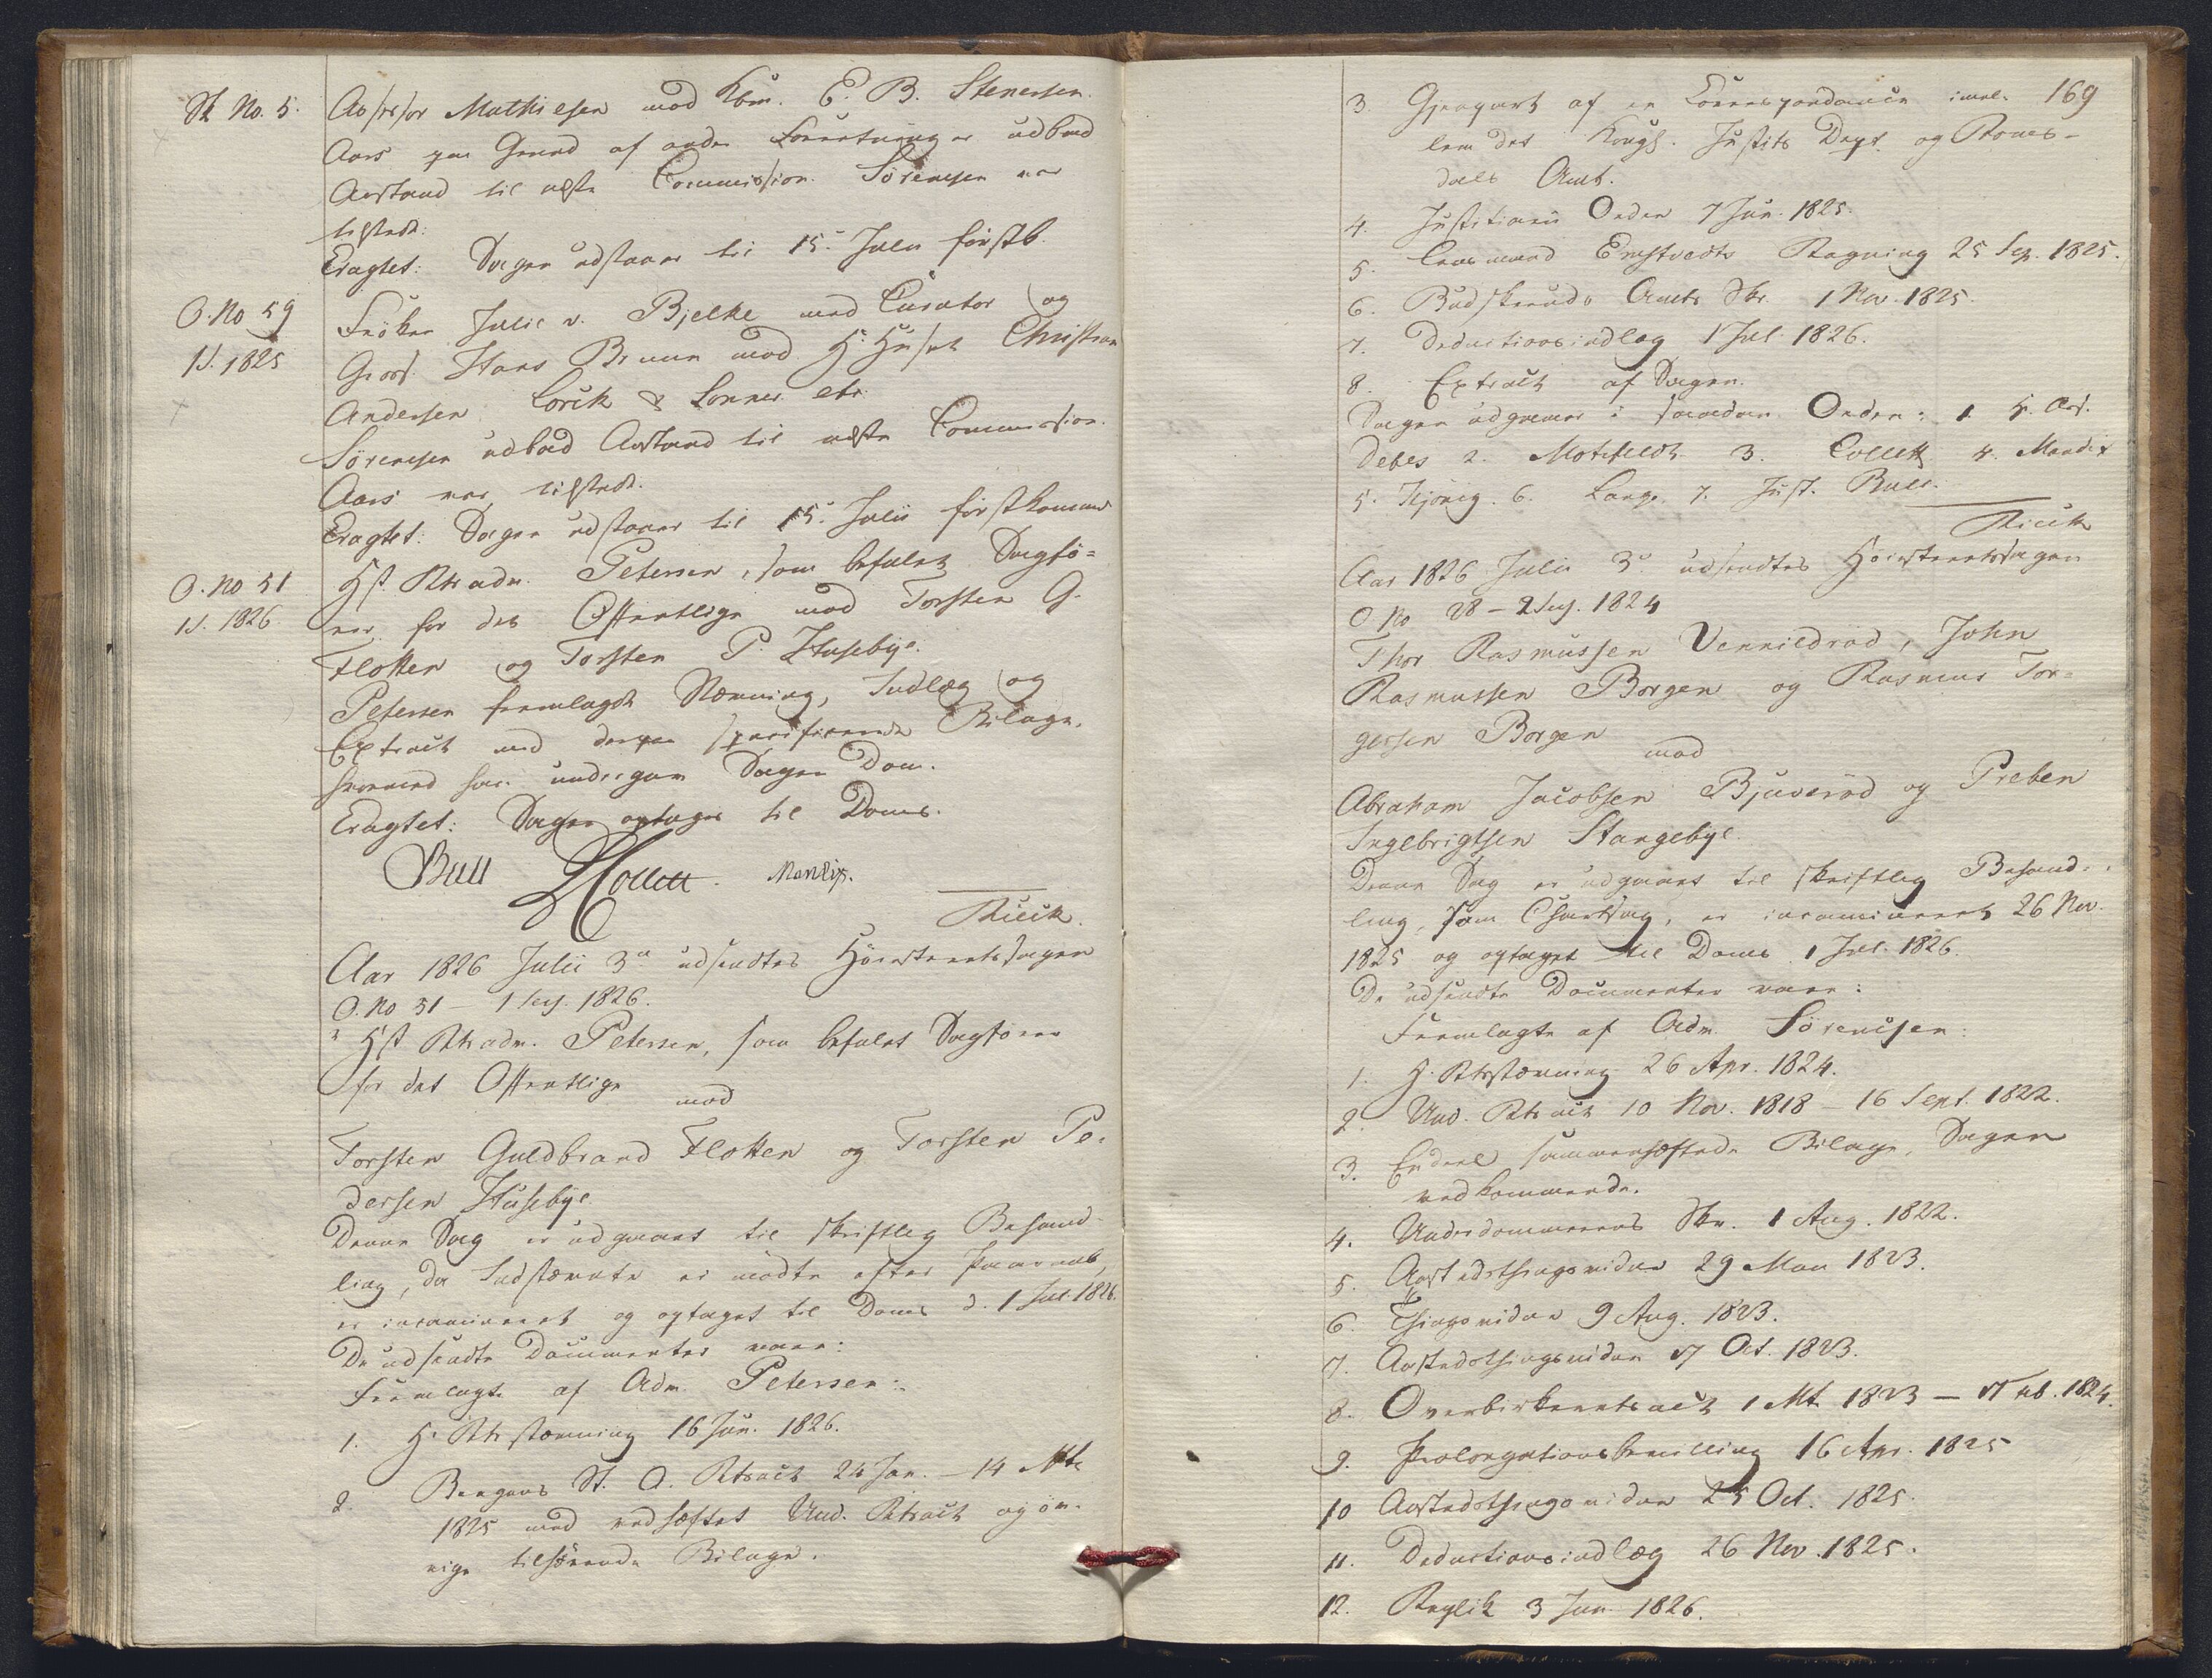 St No. 5.
Assessor Mathiesen mod Kbm. E. B. Stenersen.
Aars paa Grund af andre Forretninger udbad
Anstand til næste Commission. Sörensen var
tilstede.
Eragtet: Sagen udstaaer til 15. Julii förstk.
O. No 59
1 S. 1825
Fröken Julie v. Bjelke med Curator og
Gross. Hans Bruun mod H. Huset Christian
Andersen Lorck & Sonner etc.
Sörensen udbad Anstand til næste Commission.
Aars var tilstede.
Eragtet: Sagen udstaaer til 15. Julii förstkommende
O. No 51
1 S. 1826.
Hst Rts adv. Petersen, som befalet Sagfö=
rer for det Offentlige mod Torsten G.
Flotten og Torsten P. Husebye.
Petersen fremlagde Stævning, Indlæg og
Extract med deri specificerede Bilage,
hvormed han undergav Sagen Dom.
Eragtet: Sagen optages til Doms.
Bull Collett. Mandix.
Rieck.
Aar 1826 Julii 3de udsendtes Höiesteretssagen
O. No 51 – 1 Sess. 1826.
Hst Rtsadv. Petersen, som befalet Sagförer
for det Offentlige
mod
Torsten Guldbrand Flotten og Torsten Pe=
dersen Husebye.
Denne Sag er udgaaet til skriftlig Behand=
ling, da Indstævnte ei mödte efter Paaraab,
er incamineret og optaget til Doms d. 1 Jul. 1826.
De udsendte Documenter vare:
Fremlagte af Adv. Petersen:
1. H. Rts stævning 16 Jun. 1826.
2. Bergens St. O. Retsact 24 Jan. – 14 Mts
1825 med vedhæftet Und. Retsact og öv=
rige tilhörende Bilage.
169
3. Gjenpart af en Correspondance imel=
lem det Kongl. Justits Dept. og Roms=
dals Amt.
4. Justitiarii Orden 7 Jun. 1825.
5. Lensmand Regning 25 Sep. 1825.
6. Budskeruds Amts Skr. 1 Nov. 1825.
7. Deductionsindlæg 1 Jul. 1826.
8. Extract af Sagen.
Sagen udgaaer i saadan Orden: 1 H. Ass.
Debes 2. Motzfeldt 3. Collett 4. Mandix
5. 6. Lange. 7. Just. Bull.
Rieck
Aar 1826 Julii 3de udsendtes Höiesteretssagen
O No 28 – 2 Sess. 1824
Thor Rasmussen Vennildröd, John
Rasmussen Borgen og Rasmus Tor=
gersen Borgen
mod
Abraham Jacobsen Bjuveröd og Preben
Ingebrigtsen Stangebye.
Denne Sag er udgaaet til skriftlig Behand=
ling, som, er incamineret 26 Nov.
1825 og optaget til Doms 1 Jul. 1826.
De udsendte Documenter vare:
Fremlagte af Adv. Sörensen:
1. H. Rtsstævning 26 Apr. 1824.
2. Und. Rts act 10 Nov. 1818 – 16 Sept. 1822.
3. Endeel sammenhæftede Bilage, Sagen
vedkommende.
4. Underdommerens Skr. 1 Aug. 1822.
5. Aastedsthingsvidne 29 Mai 1823.
6. Thingsvidne 9 Aug. 1823.
7. Aastedsthingsvidne 7 Oct. 1823.
8. Overbirkeretsact 1 Mt. 1823 – 7 Feb. 1824.
9. Prolongationsbevilling 16 Apr. 1825
10 Aastedsthingsvidne 25 Oct. 1825.
11. Deductionsindlæg 26 Nov. 1825.
12. Replik 3 Jan 1826.